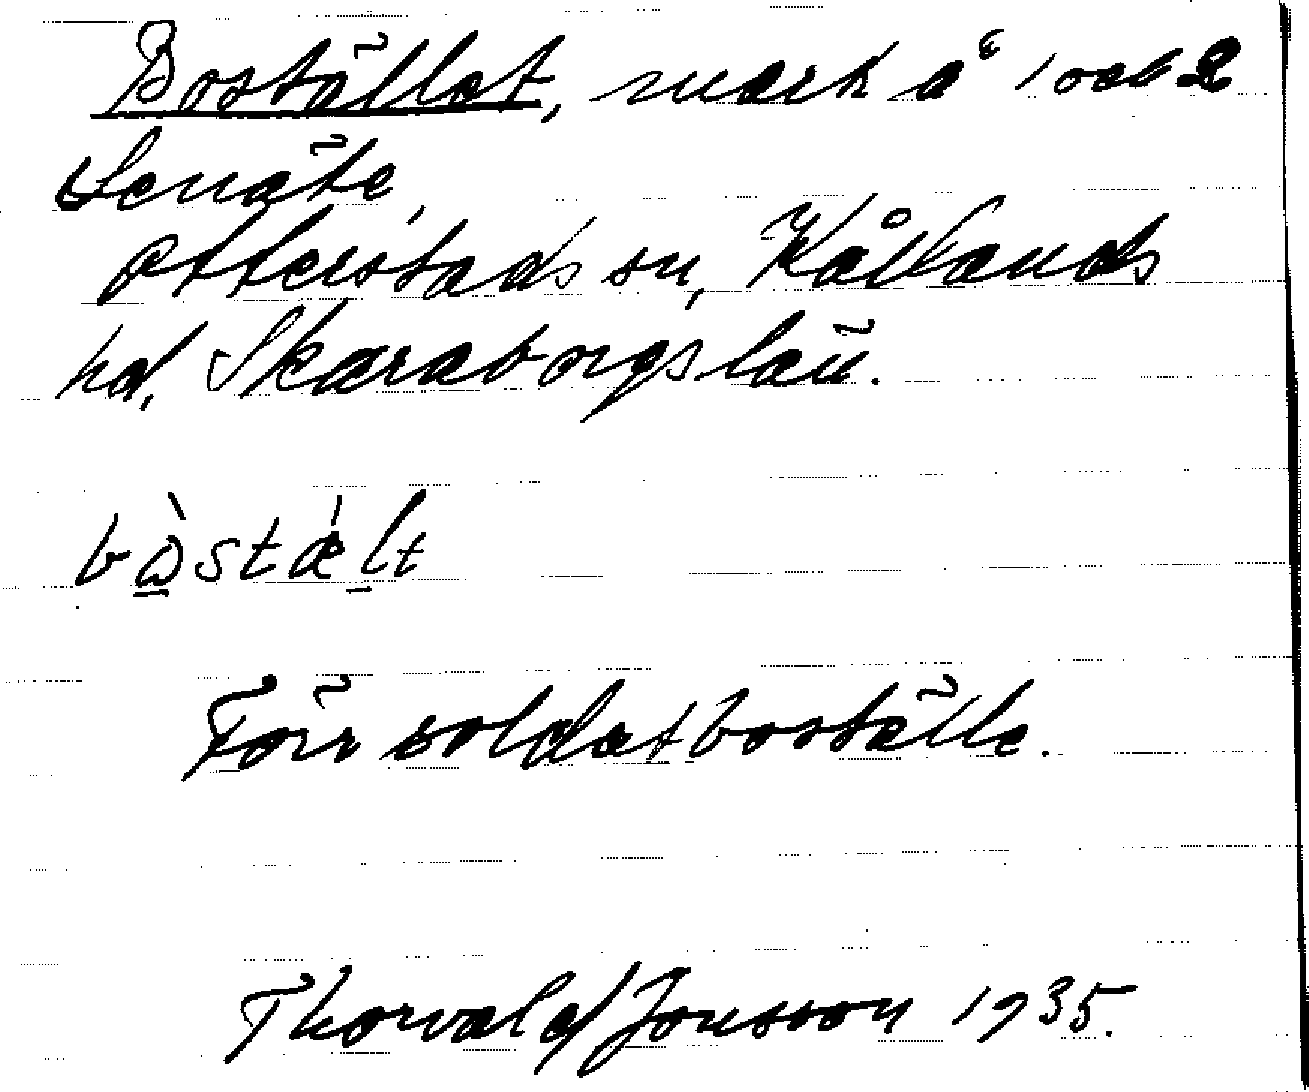 Boställat, mark å 1 och 2
Senäte,
Otterstads sn, Kållands
hd, Skaraborgs län.
bòstælt
Förr soldatboställe.
Thorvald Jonsson 1935.